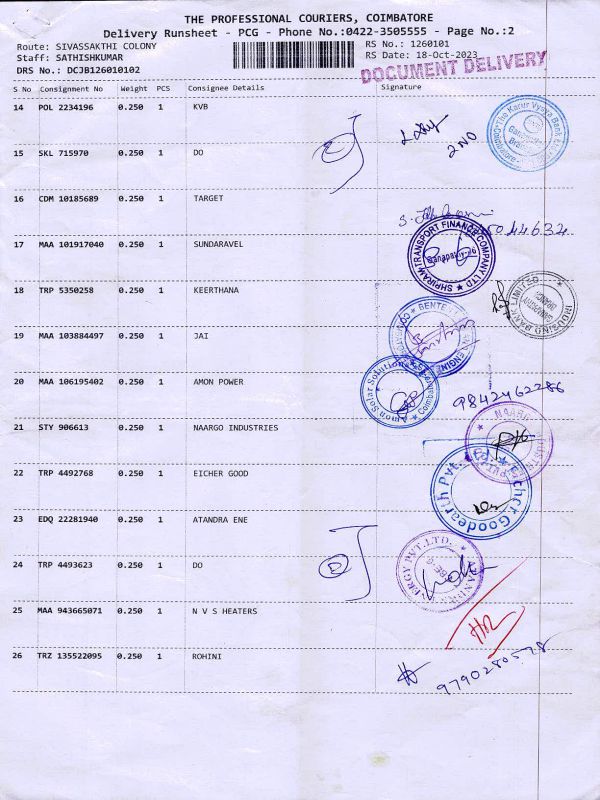 THE PROFESSIONAL COURIERS, COIMBATORE
Delivery Runsheet - PCG - Phone No.:0422-3505555 - Page No.:2
Route: SIVASSAKTHI COLONY
RS No.: 1260101
Staff: SATHISHKUMAR
RS Date: 18-Oct-2023
DRS No.: DCJB126010102
DOCUMENT DELIVERY
S No Consignment No Weight PCS Consignee Details Signature
14 POL 2234196 0.250 1 KVB
2ND
15 SKL 715970 0.250 1 DO
16 CDM 10185689 0.250 1 TARGET
17 MAA 101917040 0.250 1 SUNDARAVEL
SHRIRAM TRANSPORT FINANCE COMPANY LTD
18 TRP 5350258 0.250 1 KEERTHANA
INDUSIND BANK LIMITED
19 MAA 103884497 0.250 1 JAI
20 MAA 106195402 0.250 1 AMON POWER
Amon Solar Solutions
9842462286
21 STY 906613 0.250 1 NAARGO INDUSTRIES
22 TRP 4492768 0.250 1 EICHER GOOD
Eicher Goodearth Pvt. Ltd.
23 EDQ 22281940 0.250 1 ATANDRA ENE
24 TRP 4493623 0.250 1 DO
25 MAA 943665071 0.250 1 N V S HEATERS
26 TRZ 135522095 0.250 1 ROHINI
9790280578